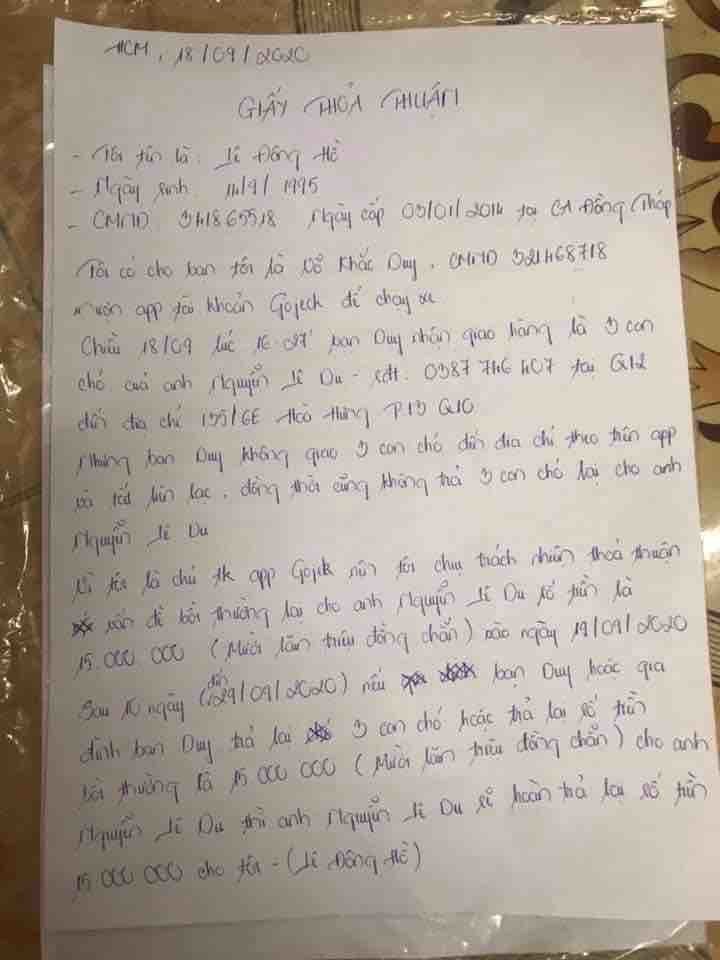 HCM, 18/09/2020
GIẤY THỎA THUẬN
- Tôi tên là: Lê Đông Hồ
- Ngày sinh 14/9/1995
- CMND 341865518 Ngày cấp 03/01/2014 tại CA Đồng Tháp
Tôi có cho bạn tôi là Võ Khắc Duy, CMND 321468718
mượn app tài khoản Gojeck để chạy xe
Chiều 18/09 lúc 16:27' bạn Duy nhận giao hàng là 3 con
chó của anh Nguyễn Lê Du - sdt: 0387 746 407 tại Q12
đến địa chỉ 195/6E Hoà Hưng P13 Q10
Nhưng bạn Duy không giao 3 con chó đến địa chỉ theo trên app
và tắt liên lạc, đồng thời cũng không trả 3 con chó lại cho anh
Nguyễn Lê Du
Vì tôi là chủ tk app Gojek nên tôi chịu trách nhiệm thoả thuận
vấn đề bồi thường lại cho anh Nguyễn Lê Du số tiền là
15.000 000 (Mười lăm triệu đồng chẵn) vào ngày 19/09/2020
Sau 10 ngày (đến 29/09/2020) nếu bạn Duy hoặc gia
đình bạn Duy trả lại 3 con chó hoặc trả lại số tiền
bồi thường là 15 000 000 (Mười lăm triệu đồng chẵn) cho anh
Nguyễn Lê Du thì anh Nguyễn Lê Du sẽ hoàn trả lại số tiền
15 000 000 cho tôi - (Lê Đông Hồ)